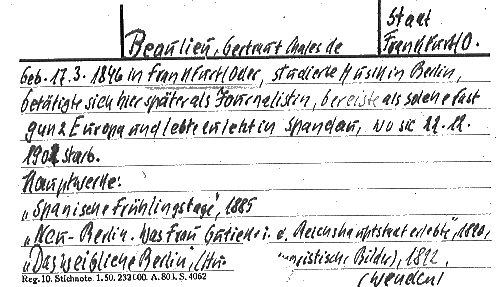 Stadt
Beaulieu, Gertraut Chales de Frankfurt/O.
geb. 17.3. 1846 in Frankfurt/Oder, studierte Musik in Berlin,
betätigte sich hier später als Journalistin, bereiste als solche fast
ganz Europa und lebte zuletzt in Spandau, wo sie 22.12.
1902 starb.
Hauptwerke:
„Spanische Frühlingstage", 1885
„Neu-Berlin. Was Frau in d. Reichshauptstadt erlebte", 1890,
„Das weibliche Berlin", (Hu- ristische Bilder), 1892,
Reg. 10. Stichnote. 1. 50. 232000. A. 80 i. S. 4062
(wenden)